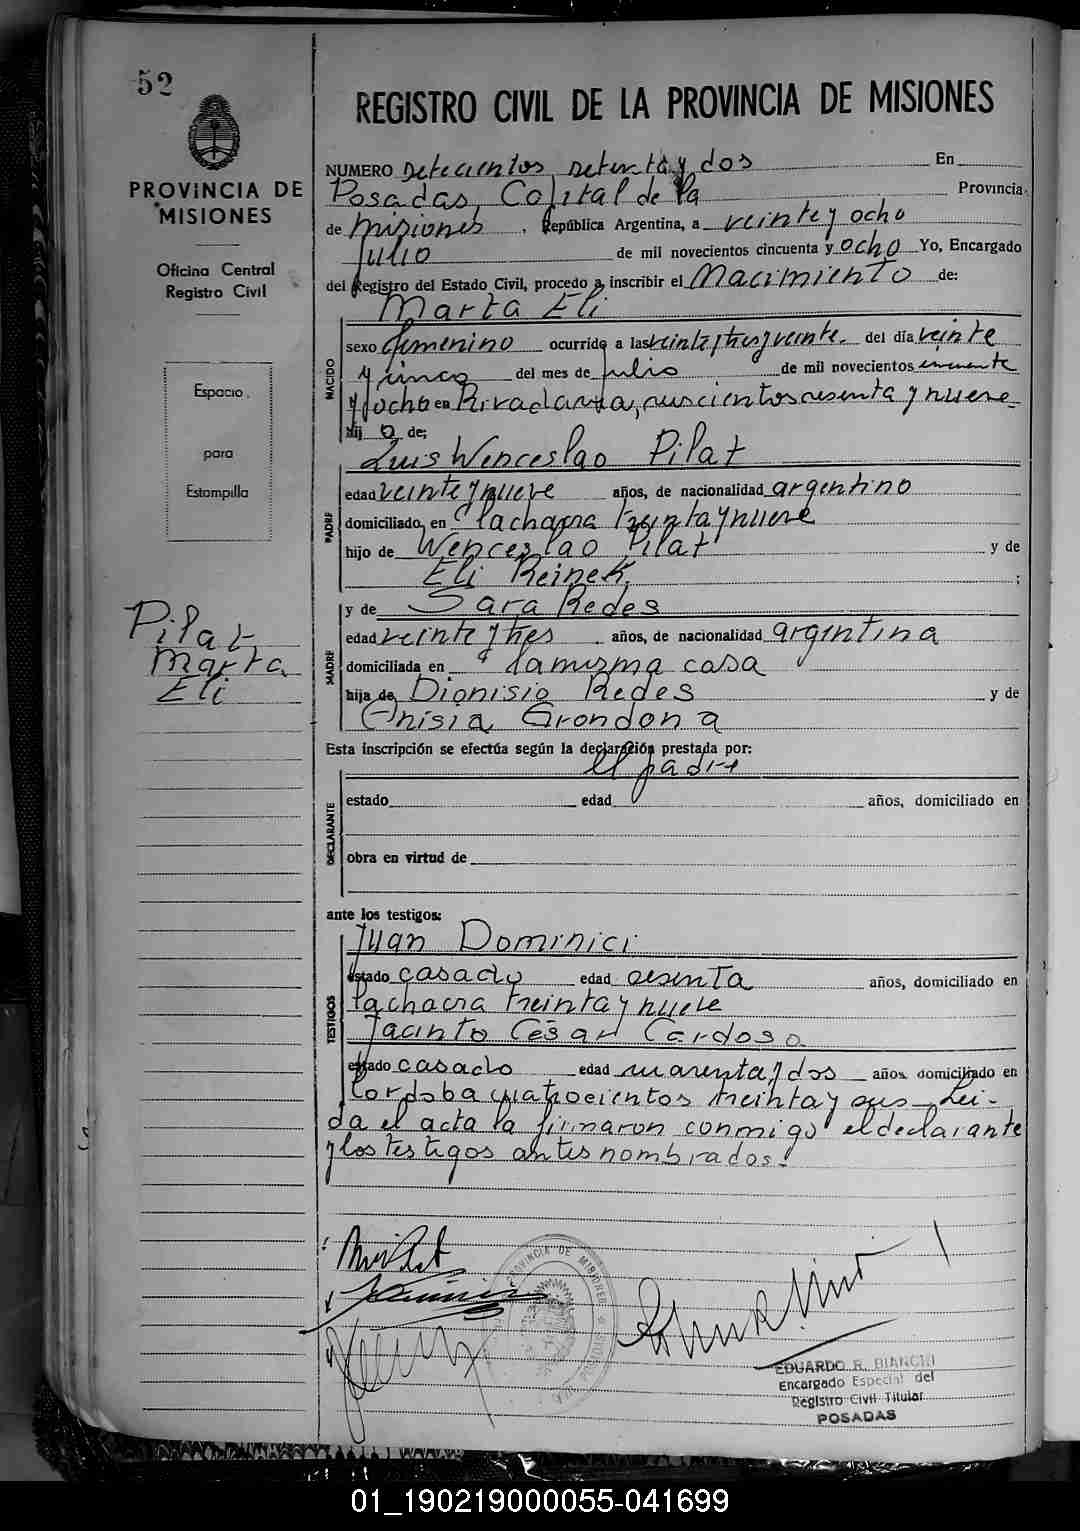 52
REGISTRO CIVIL DE LA PROVINCIA DE MISIONES
PROVINCIA DE
MISIONES
Oficina Central
Registro Civil
Espacio
para
Estampilla
Pilat
Marta
Eli
NUMERO setecientos setenta y dos En
Posadas, Capital de la Provincia
de Misiones, República Argentina, a veinte y ocho
Julio de mil novecientos cincuenta y ocho Yo, Encargado
del Registro del Estado Civil, procedo a inscribir el Nacimiento de:
Marta Eli
NACIDO
sexo femenino ocurrido a las veinte y tres y veinte. del día veinte
y cinco del mes de julio de mil novecientos cincuenta
y ocho en Rivadavia, seiscientos sesenta y nueve
hij a de;
Luis Wenceslao Pilat
PADRE
edad veinte y nueve años, de nacionalidad argentino
domiciliado, en la chacra treinta y nueve
hijo de Wenceslao Pilat y de
Eli Reinek ;
MADRE
y de Sara Redes
edad veinte y tres años, de nacionalidad argentina
domiciliada en la misma casa
hija de Dionisio Redes y de
Anisia Grondona
Esta inscripción se efectúa según la declaración prestada por:
el padre
DECLARANTE
estado edad años, domiciliado en
obra en virtud de
ante los testigos:
Juan Dominici
TESTIGOS
estado casado edad sesenta años, domiciliado en
la chacra treinta y nueve
Jacinto César Cardoso
estado casado edad cuarenta y dos años, domiciliado en
Córdoba cuatrocientos treinta y seis Lei-
da el acta la firmaron conmigo el declarante
y los testigos antes nombrados.-
PROVINCIA DE MISIONES
EDUARDO R. BIANCHI
Encargado Especial del
Registro Civil Titular
POSADAS
01_190219000055-041699